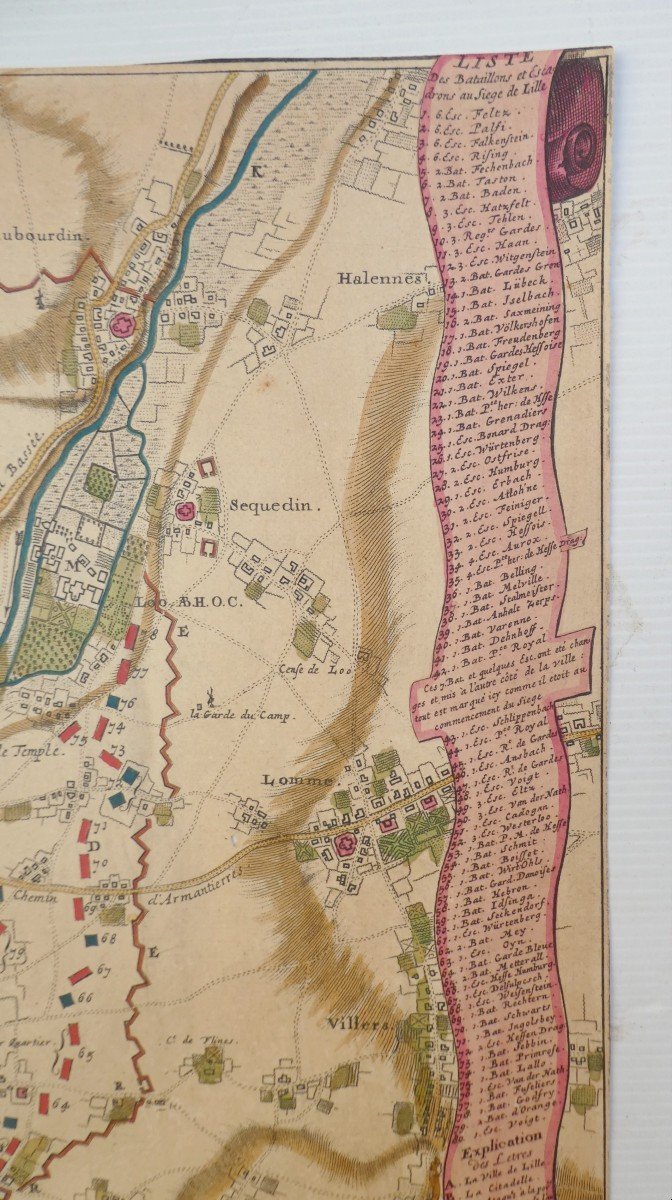 LISTE
Des Bataillons et Esca
drons au Siege de Lille
1. 6. Esc. Feltz.
2. 6. Esc. Palfi.
3. 6. Esc. Falkenstein.
4. 6. Esc. Rising.
5. 2. Bat. Fechenbach.
6. 2. Bat. Taston.
7. 2. Bat. Baden.
8. 3. Esc. Hatzfelt.
9. 3. Esc. Tehlen.
10. 3. Reg.ts Gardes.
11. 3. Esc. Haan.
12. 3. Esc. Witgenstein
13. 2. Bat. Gardes Gren
14. 1. Bat. Lübeck
15. 1. Bat. Isselbach.
16. 2. Bat. Saxmeining
17. 1. Bat. Völkershofen
18. 1. Bat. Freudenberg
19. 1. Bat. Gardes Hessoise
20. 1. Bat. Spiegel.
21. 1. Bat. Exter.
22. 1. Bat. Wilkens.
23. 1. Bat. P.ce her: de Hsse
24. 1. Bat. Grenadiers
25. 1. Esc. Bonard Drag:
26. 1. Esc. Würtenberg.
27. 2. Esc. Ostfrise.
28. 2. Esc. Humburg.
29. 1. Esc. Erbach.
30. 2. Esc. Atloh'ne
31. 2. Esc. Feiniger.
32. 2. Esc. Spiegell
33. 2. Esc. Hessois.
34. 4. Esc. Aurox.
35. 4. Esc. P.ce her: de Hesse Drag.
36. 1. Bat. Belling.
37. 1. Bat. Melville.
38. 1. Bat. Stalmeister.
39. 1. Bat. Anhalt Zerps.
40. 1. Bat. Varenne.
41. 1. Bat. Dehnhoff.
42. 1. Bat. P.ce Royal.
Ces 7 Bat et quelques Esc. ont eté chan
gés et mis a l'autre côté de la ville:
tout est marqué icy comme il etoit au
commencement du Siege
43. 1. Esc. Schlippenbach
44. 1. Esc. P.ce Royal.
45. 1. Esc. R.t de Gardes
46. 1. Esc. Ansbach.
47. 1. Esc. R.t de Gardes
48. 1. Esc. Voigt.
49. 3. Esc. Eltz
50. 3. Esc. van der Nath
51. 1. Esc. Cadogan.
52. 3. Esc. Westerloo.
53. 1. Bat. P. M. de Hesse
54. 1. Bat. Schmit:
55. 1. Bat. Boisset.
56. 1. Bat. Wirt Ohls.
57. 1. Bat. Gard. Danoises
58. 1. Bat. Hebron.
59. 1. Bat. Idsinga.
60. 1. Bat. Seckendorf.
61. 1. Esc. Würtenberg.
62. 2. Bat. Mey.
63. 1. Esc. Oyn.
64. 1. Bat. Garde Bleue
65. 2. Bat. Metterall.
66. 1. Esc. Hesse Humburg.
67. 1. Esc. Weisenstein.
68. 1. Bat. Rechtern
70. 1. Bat. Schwarts
71. 1. Bat. Ingolsbey
72. 2. Esc. Hessen Drag.
73. 1. Bat. Sebbin.
74. 1. Bat. Primrose.
75. 1. Bat. Lallo.
76. 1. Esc. Van der Nath
77. 1. Bat. Fusiliers
78. 1. Bat. Godfry
79. 2. Bat. d'Orange.
80. 1. Esc. Voigt.
Explication
des Letres
A. La Ville de Lille.
La Citadelle
K
ubourdin.
Halennes
a Bassée
Sequedin.
M
Loo. AB.H.O.C.
E
78
77
Cense de Loo
76
75
74
la Garde du Camp.
le Temple.
73
Lomme
71
D
70
Chemin
d'Armantierres
69
68
E
79
67
66
Villers
C. de Flines
r Quartier.
65
64
R